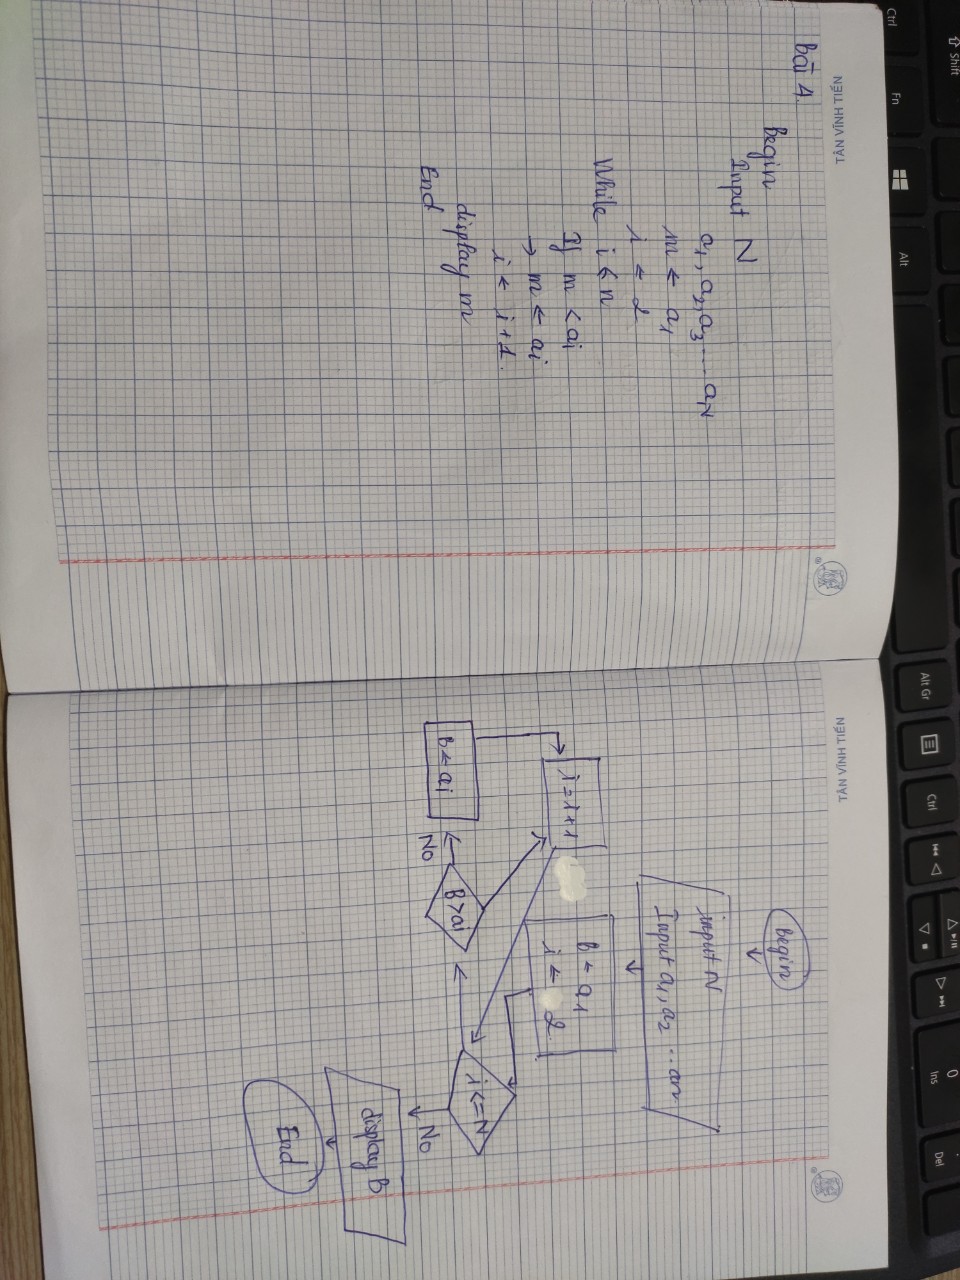 Shift
Ctrl
Fn
Alt
Alt Gr
Ctrl
0
Ins
Del
TÂN VĨNH TIẾN
Bài 4.
Begin
Input N
a1, a2, a3 ... aN
m ← a1
i ← 2
While i ≤ n
If m < ai
→ m ← ai
i ← i+1.
display m
End
TÂN VĨNH TIẾN
Begin
input N
Input a1, a2 ... an
B ← a1
i ← 2
i = i + 1
i <= N
B > ai
No
B ← ai
No
display B
End